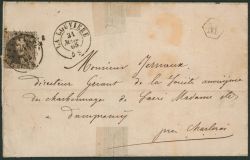 LA LOUVIÈRE
31
65
Monsieur
directeur Gérant de la Société anonyme
du charbonnage de Sacré Madame etc
à Dampremy
près Charleroi